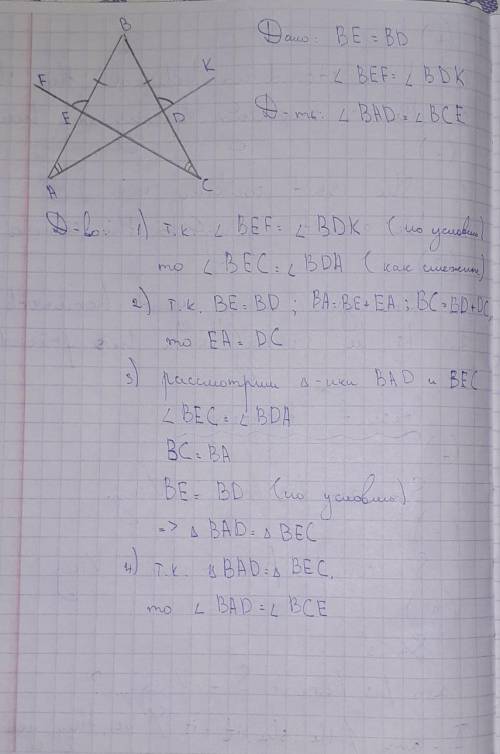 B
F
K
E
D
A
C
Дано: BE = BD
∠ BEF = ∠ BDK
Д-ть: ∠ BAD = ∠ BCE
Д-во: 1) т.к. ∠ BEF = ∠ BDK (по условию)
то ∠ BEC = ∠ BDA (как смежные)
2) т.к. BE = BD ; BA = BE + EA ; BC = BD + DC,
то EA = DC
3) рассмотрим Δ-ики BAD и BEC
∠ BEC = ∠ BDA
BC = BA
BE = BD (по условию)
=> Δ BAD = Δ BEC
4) т.к. Δ BAD = Δ BEC,
то ∠ BAD = ∠ BCE